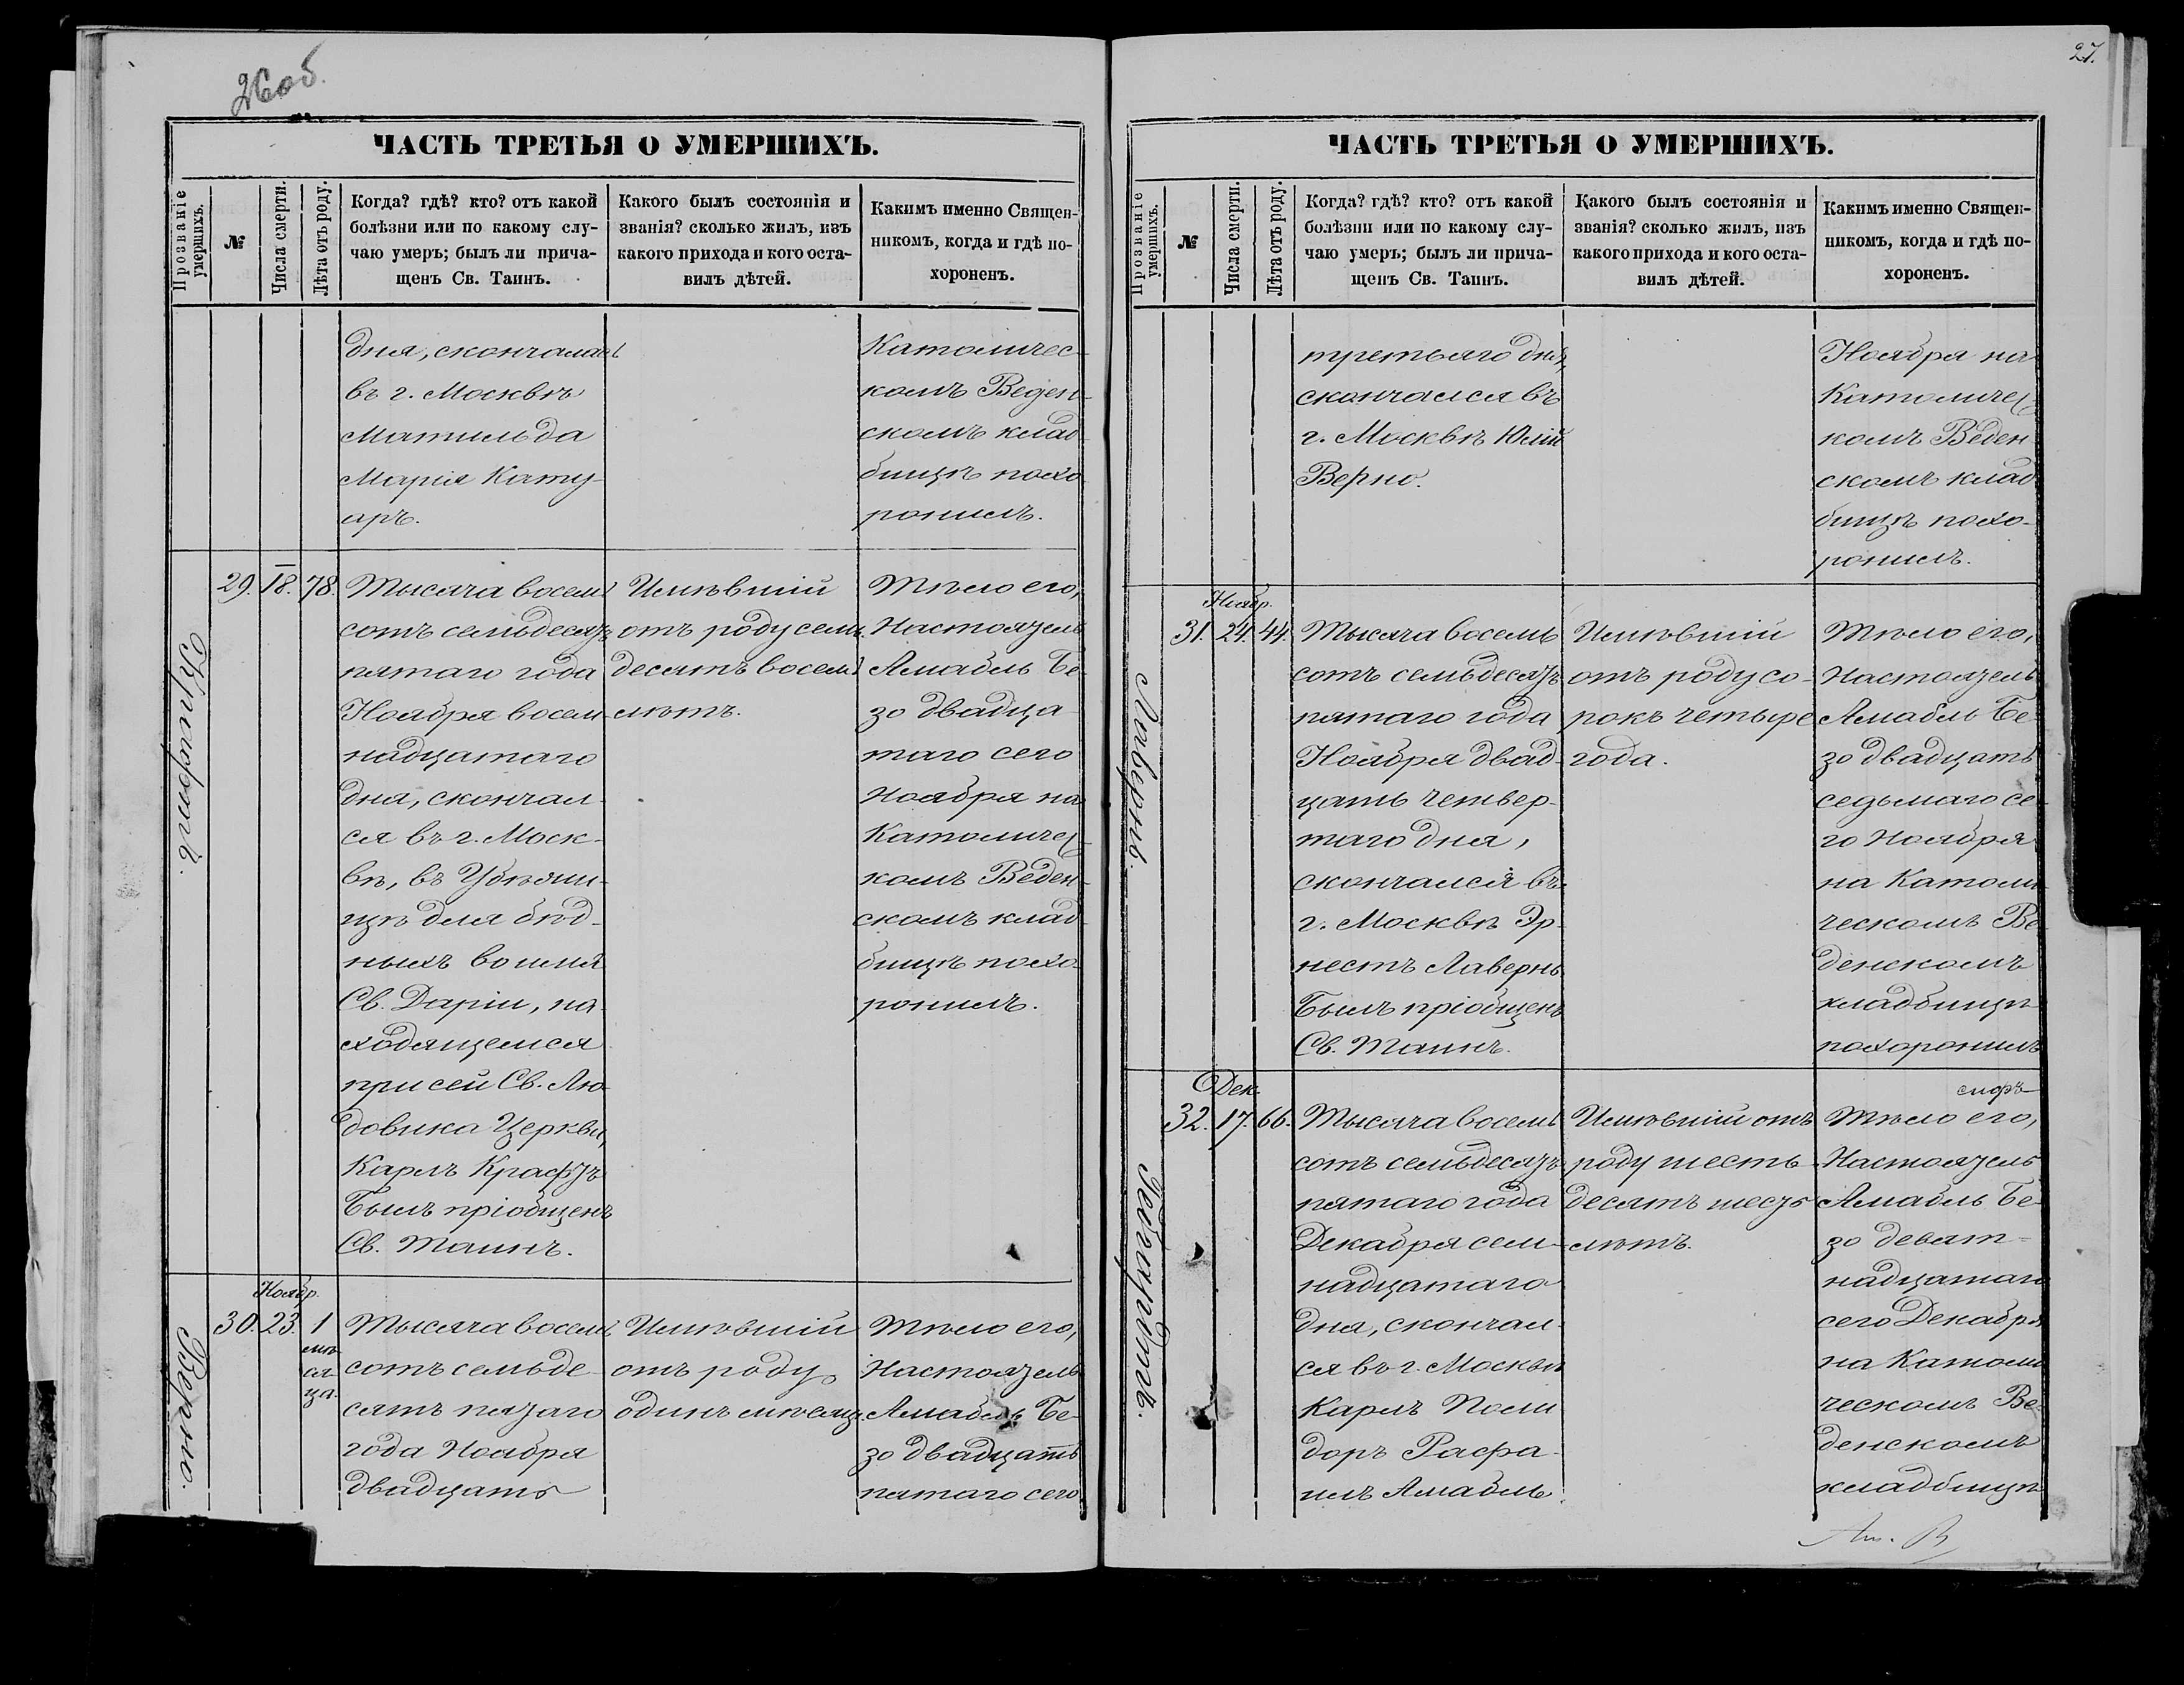 26 об.
ЧАСТЬ ТРЕТЬЯ О УМЕРШИХЪ.
Прозваніе умершихъ.
№
Числа смерти.
Лѣта отъ роду.
Когда? гдѣ? кто? отъ какой
болѣзни или по какому слу-
чаю умеръ; былъ ли прича-
щенъ Св. Таинъ.
Какого былъ состоянія и
званія? сколько жилъ, изъ
какого прихода и кого оста-
вилъ дѣтей.
Какимъ именно Священ-
никомъ, когда и гдѣ по-
хороненъ.
дня, скончалась
въ г. Москвѣ
Матильда
Марія Кату-
аръ.
Католичес-
комъ Веден-
скомъ клад-
бищѣ похо
ронилъ.
29. 18. 78.
Тысяча восемь
сотъ семьдесятъ
пятаго года
Ноября восем-
надцатаго
дня, скончал-
ся въ г. Моск-
вѣ, въ Убѣжи-
щѣ для бѣд-
ныхъ во имя
Св. Даріи, на-
ходящемся
при сей Св. Лю-
довика Церкви,
Карлъ Крафтъ
Былъ пріобщенъ
Св. Таинъ.
Имѣвшій
отъ роду семь
десятъ восемь
лѣтъ.
Тѣло его,
Настоятель
Амабль Бе-
зо двадца-
таго сего
Ноября на
Католичес-
комъ Веден-
скомъ клад-
бищѣ похо-
ронилъ.
Ноябр.
30. 23. 1
мѣ-
ся-
ца.
Верно.
Тысяча восемь
сотъ семьде-
сятъ пятаго
года Ноября
двадцать
Имѣвшій
отъ роду
одинъ мѣсяцъ
Тѣло его,
Настоятель
Амабль Бе-
зо двадцать
пятаго сего
27.
ЧАСТЬ ТРЕТЬЯ О УМЕРШИХЪ.
Прозваніе умершихъ.
№
Числа смерти.
Лѣта отъ роду.
Когда? гдѣ? кто? отъ какой
болѣзни или по какому слу-
чаю умеръ; былъ ли прича-
щенъ Св. Таинъ.
Какого былъ состоянія и
званія? сколько жилъ, изъ
какого прихода и кого оста-
вилъ дѣтей.
Какимъ именно Священ-
никомъ, когда и гдѣ по-
хороненъ.
третьяго дня,
скончался въ
г. Москвѣ Юлій
Верно.
Ноября на
Католичес-
комъ Веден
скомъ клад
бищѣ похо-
ронилъ.
Ноябр.
31. 24. 44.
Лавернь.
Тысяча восемь
сотъ семьдесятъ
пятаго года
Ноября двад-
цать четвер-
таго дня,
скончался въ
г. Москвѣ Эр-
нестъ Лавернь
Былъ пріобщенъ
Св. Таинъ.
Имѣвшій
отъ роду со-
рокъ четыре
года.
Тѣло его,
Настоятель
Амабль Бе-
зо двадцать
седьмаго се-
го Ноября
на Католи
ческомъ Ве
денскомъ
кладбищѣ
похоронилъ
Дек.
32. 17. 66.
Тысяча восемь
сотъ семьдесятъ
пятаго года
Декабря сем-
надцатаго
дня, скончал-
ся въ г. Москвѣ
Карлъ Поли
доръ Рафа-
илъ Амабль
Имѣвшій отъ
роду шесть
десятъ шесть
лѣтъ.
Тѣло его,
Настоятель
Амабль Бе-
зо девят-
надцатаго
сего Декабря
на Католи
ческомъ Ве-
денскомъ
кладбищѣ